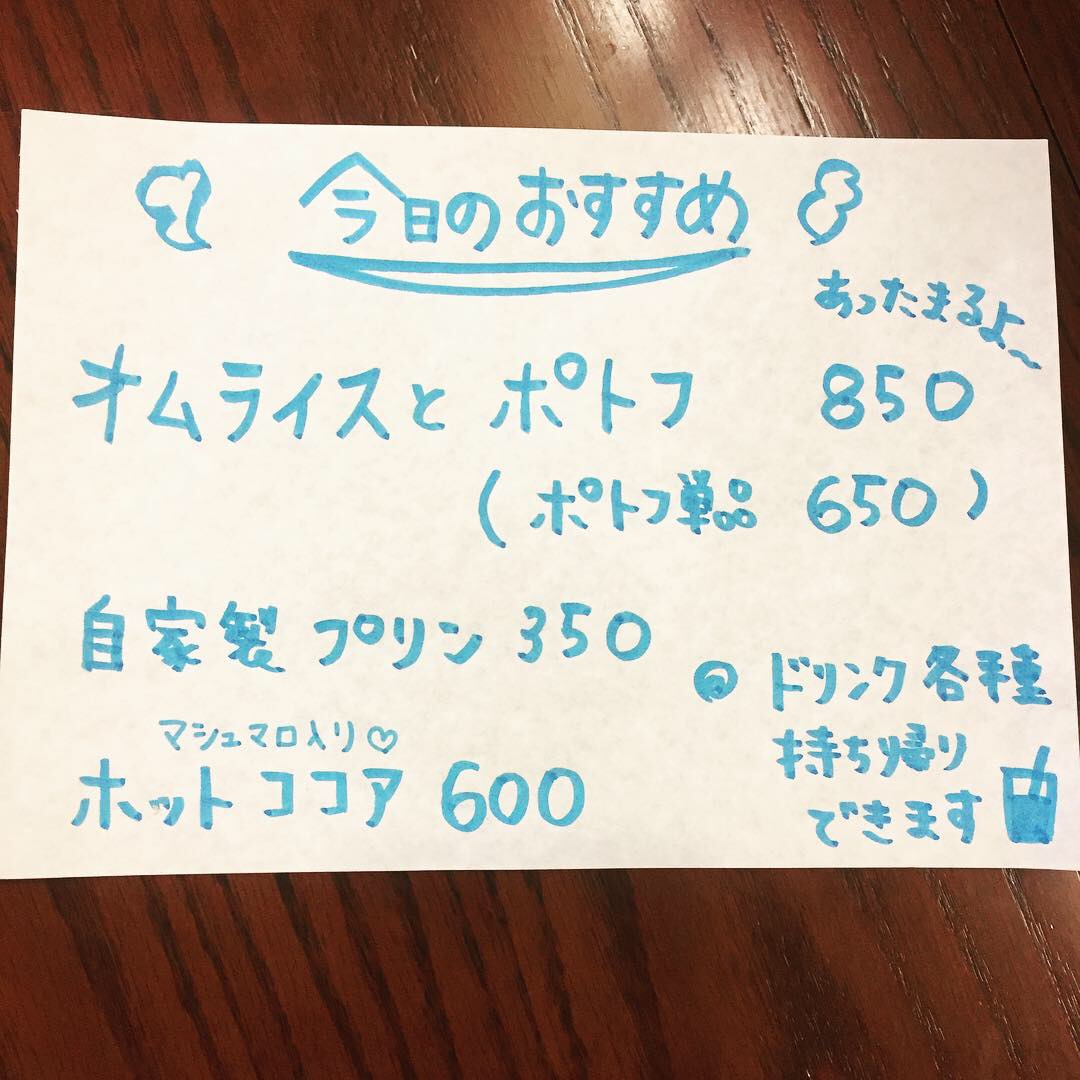 今日のおすすめ
あったまるよ〜
オムライスと ポトフ 850
(ポトフ単品 650)
自家製 プリン 350
マシュマロ入り♡
ホット ココア 600
◎ ドリンク各種
持ち帰り
できます